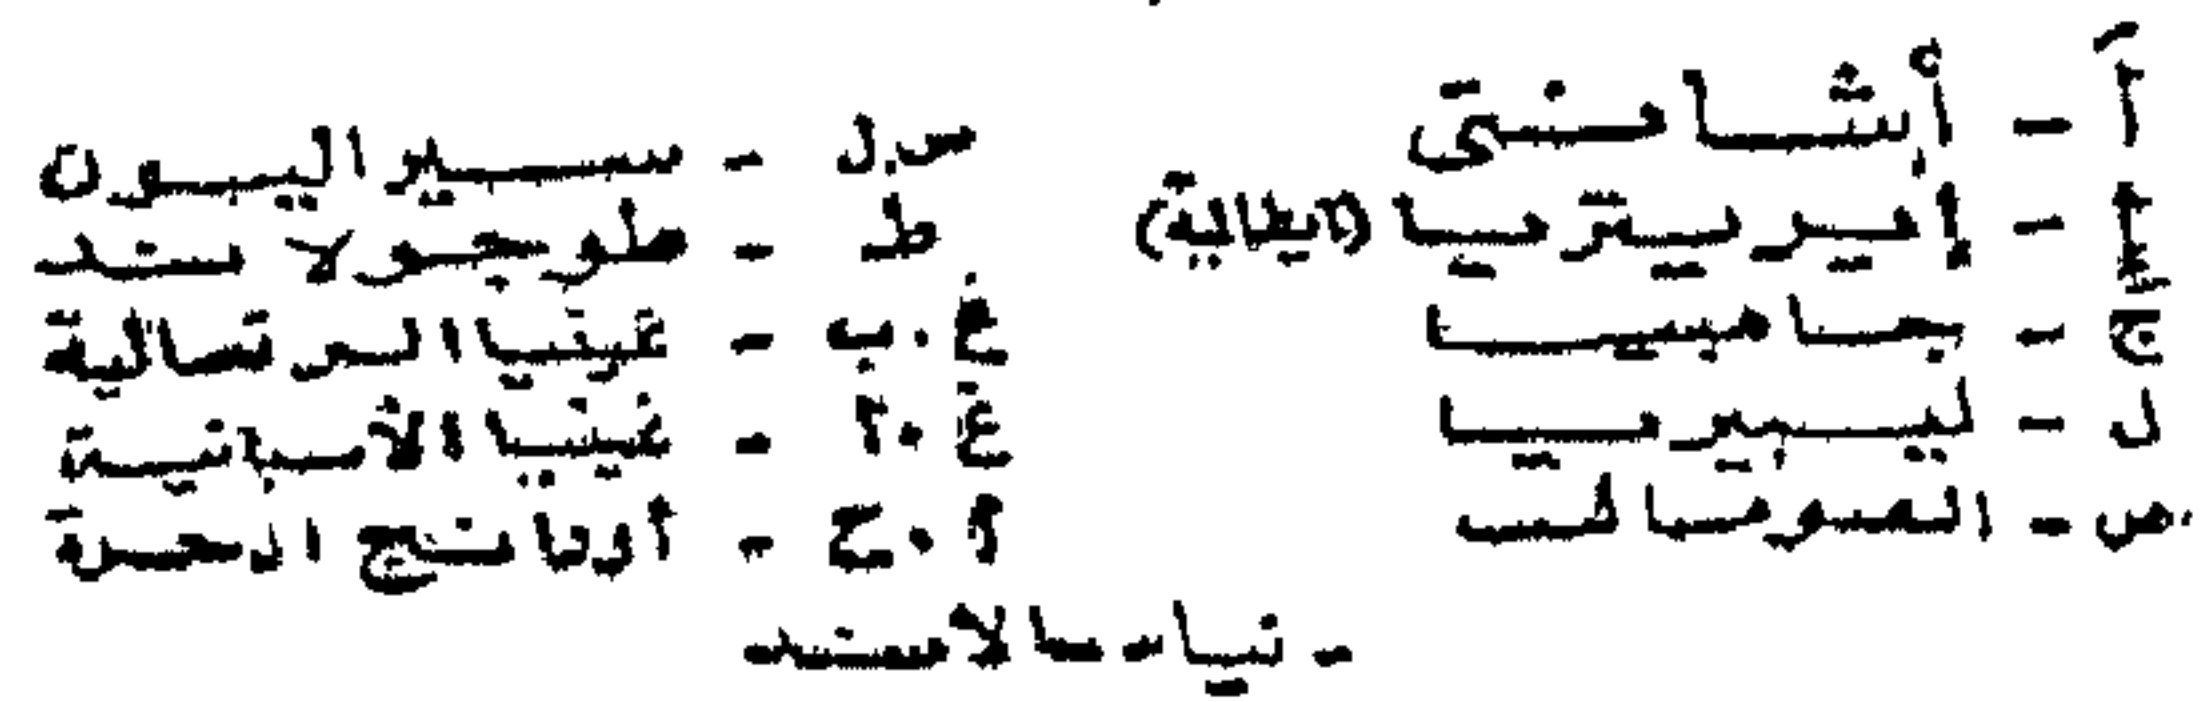 آ - أشانتى
إ - إيريتريا (ايطالية)
ج - جامبيا
ل - ليبيريا
ص - الصومال
س.ل - سيراليون
ط - طوجولاند
غ.ب - غينيا البرتغالية
غ.أ - غينيا الأسبانية
أ.ح - أورانج الحرة
- نياسالاند